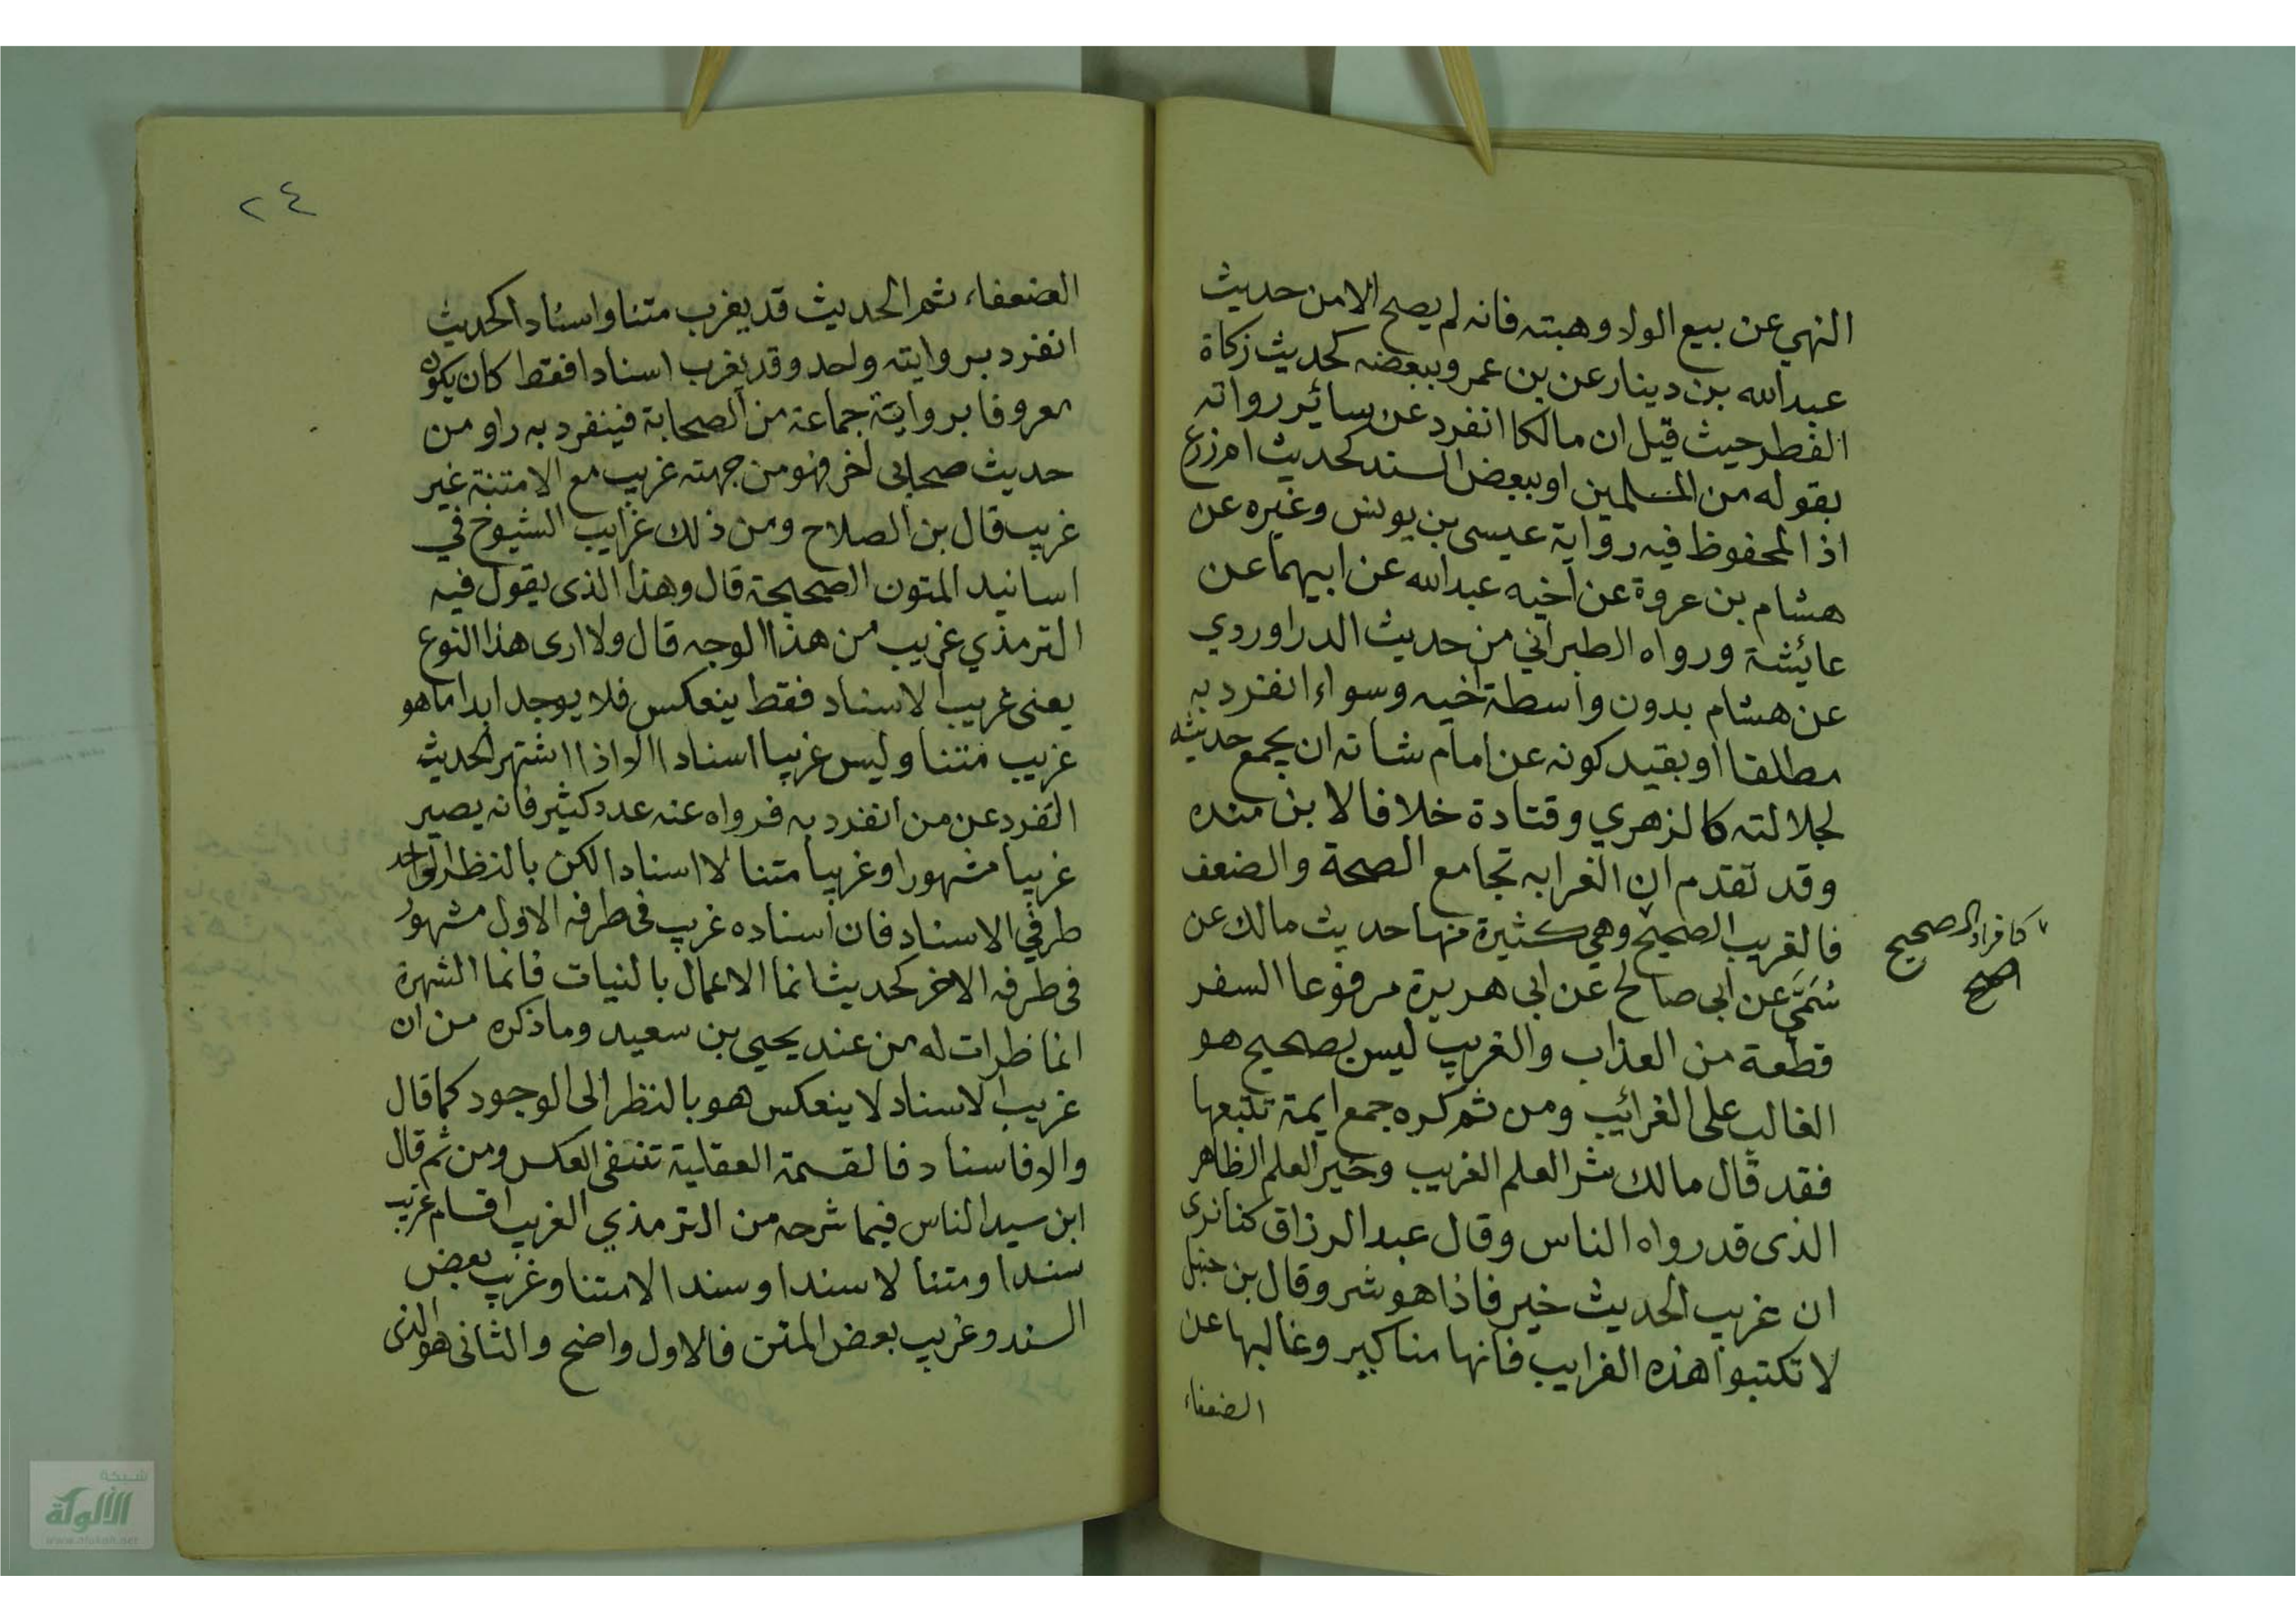 النهي عن بيع الولاد وهبته فانه لم يصح الا من حديث
عبدالله بن دينار عن بن عمر وببعضه كحديث زكاة
الفطر حيث قيل ان مالكا انفرد عن سائر رواته
بقوله من المسلمين او ببعض السند كحديث ام زرع
اذ المحفوظ فيه رواية عيسى بن يونس وغيره عن
هشام بن عروة عن اخيه عبدالله عن ابيهما عن
عائشة ورواه الطبراني من حديث الدراوردي
عن هشام بدون واسطة اخيه وسواء انفرد به
مطلقا او بقيد كونه عن امام شانه ان يجمع حديثه
لجلالته كالزهري وقتادة خلافا لابن منده
وقد تقدم ان الغرابه تجامع الصحة والضعف
فالغريب الصحيح وهي كثيرة منها حديث مالك عن
كافراد الصحيح
صح
سُمَّي عن ابي صالح عن ابي هريرة مرفوعا السفر
قطعة من العذاب والغريب ليس بصحيح هو
الغالب على الغرائب ومن ثم كره جمع ايمة تتبعها
فقد قال مالك شر العلم الغريب وخير العلم الظاهر
الذى قد رواه الناس وقال عبد الرزاق كنا نرى
ان غريب الحديث خير فاذا هو شر وقال بن حنبل
لا تكتبوا هذه الغرايب فانها مناكير وغالبها عن
الضعفاء
٢٤
الضعفاء ثم الحديث قد يغرب متنا واسنادا كحديث
انفرد بروايته واحد وقد يغرب اسنادا فقط كان يكون
معروفا برواية جماعة من الصحابة فينفرد به راو من
حديث صحابى اخر فهو من جهته غريب مع الا متنة غير
غريب قال بن الصلاح ومن ذلك غرايب الشيوخ في
اسانيد المتون الصحيحة قال وهذا الذى يقول فيه
الترمذي غريب من هذا الوجه قال ولا ارى هذا النوع
يعنى غريب الاسناد فقط ينعكس فلا يوجد ابدا ما هو
غريب متنا وليس غريبا اسنادا الا اذا اشتهر الحديث
الفرد عن من انفرد به فرواه عنه عدد كثير فانه يصير
غريبا مشهورا وغريبا متنا لا اسنادا لكن بالنظر لواحد
طرفي الاسناد فان اسناده غريب فى طرفه الاول مشهور
فى طرفه الاخر كحديث انما الاعمال بالنيات فانما الشهرة
انما طرات له من عند يحيى بن سعيد وما ذكره من ان
غريب الاسناد لا ينعكس هو بالنظر الى الوجود كما قال
والا فاسناد فالقسمة العقلية تنتفى العكس ومن ثم قال
ابن سيد الناس فيما شرحه من الترمذي الغريب اقسام غريب
سندا ومتنا لا سندا وسندا لا متنا وغريب بعض
السند وغريب بعض المتن فالاول واضح والثانى هو الذى
شبكة
الألوكة
www.alukah.net